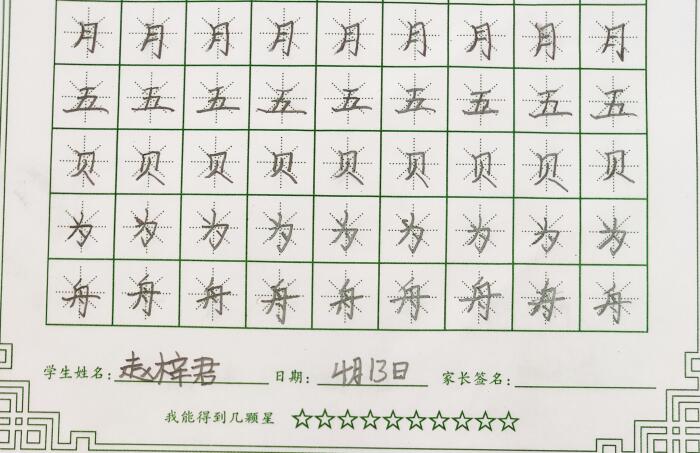 月月月月月月月月月
五五五五五五五五五
贝贝贝贝贝贝贝贝贝
为为为为为为为为为
舟舟舟舟舟舟舟舟舟
学生姓名:赵梓君 日期:4月13日 家长签名:
我能得到几颗星 ☆☆☆☆☆☆☆☆☆☆